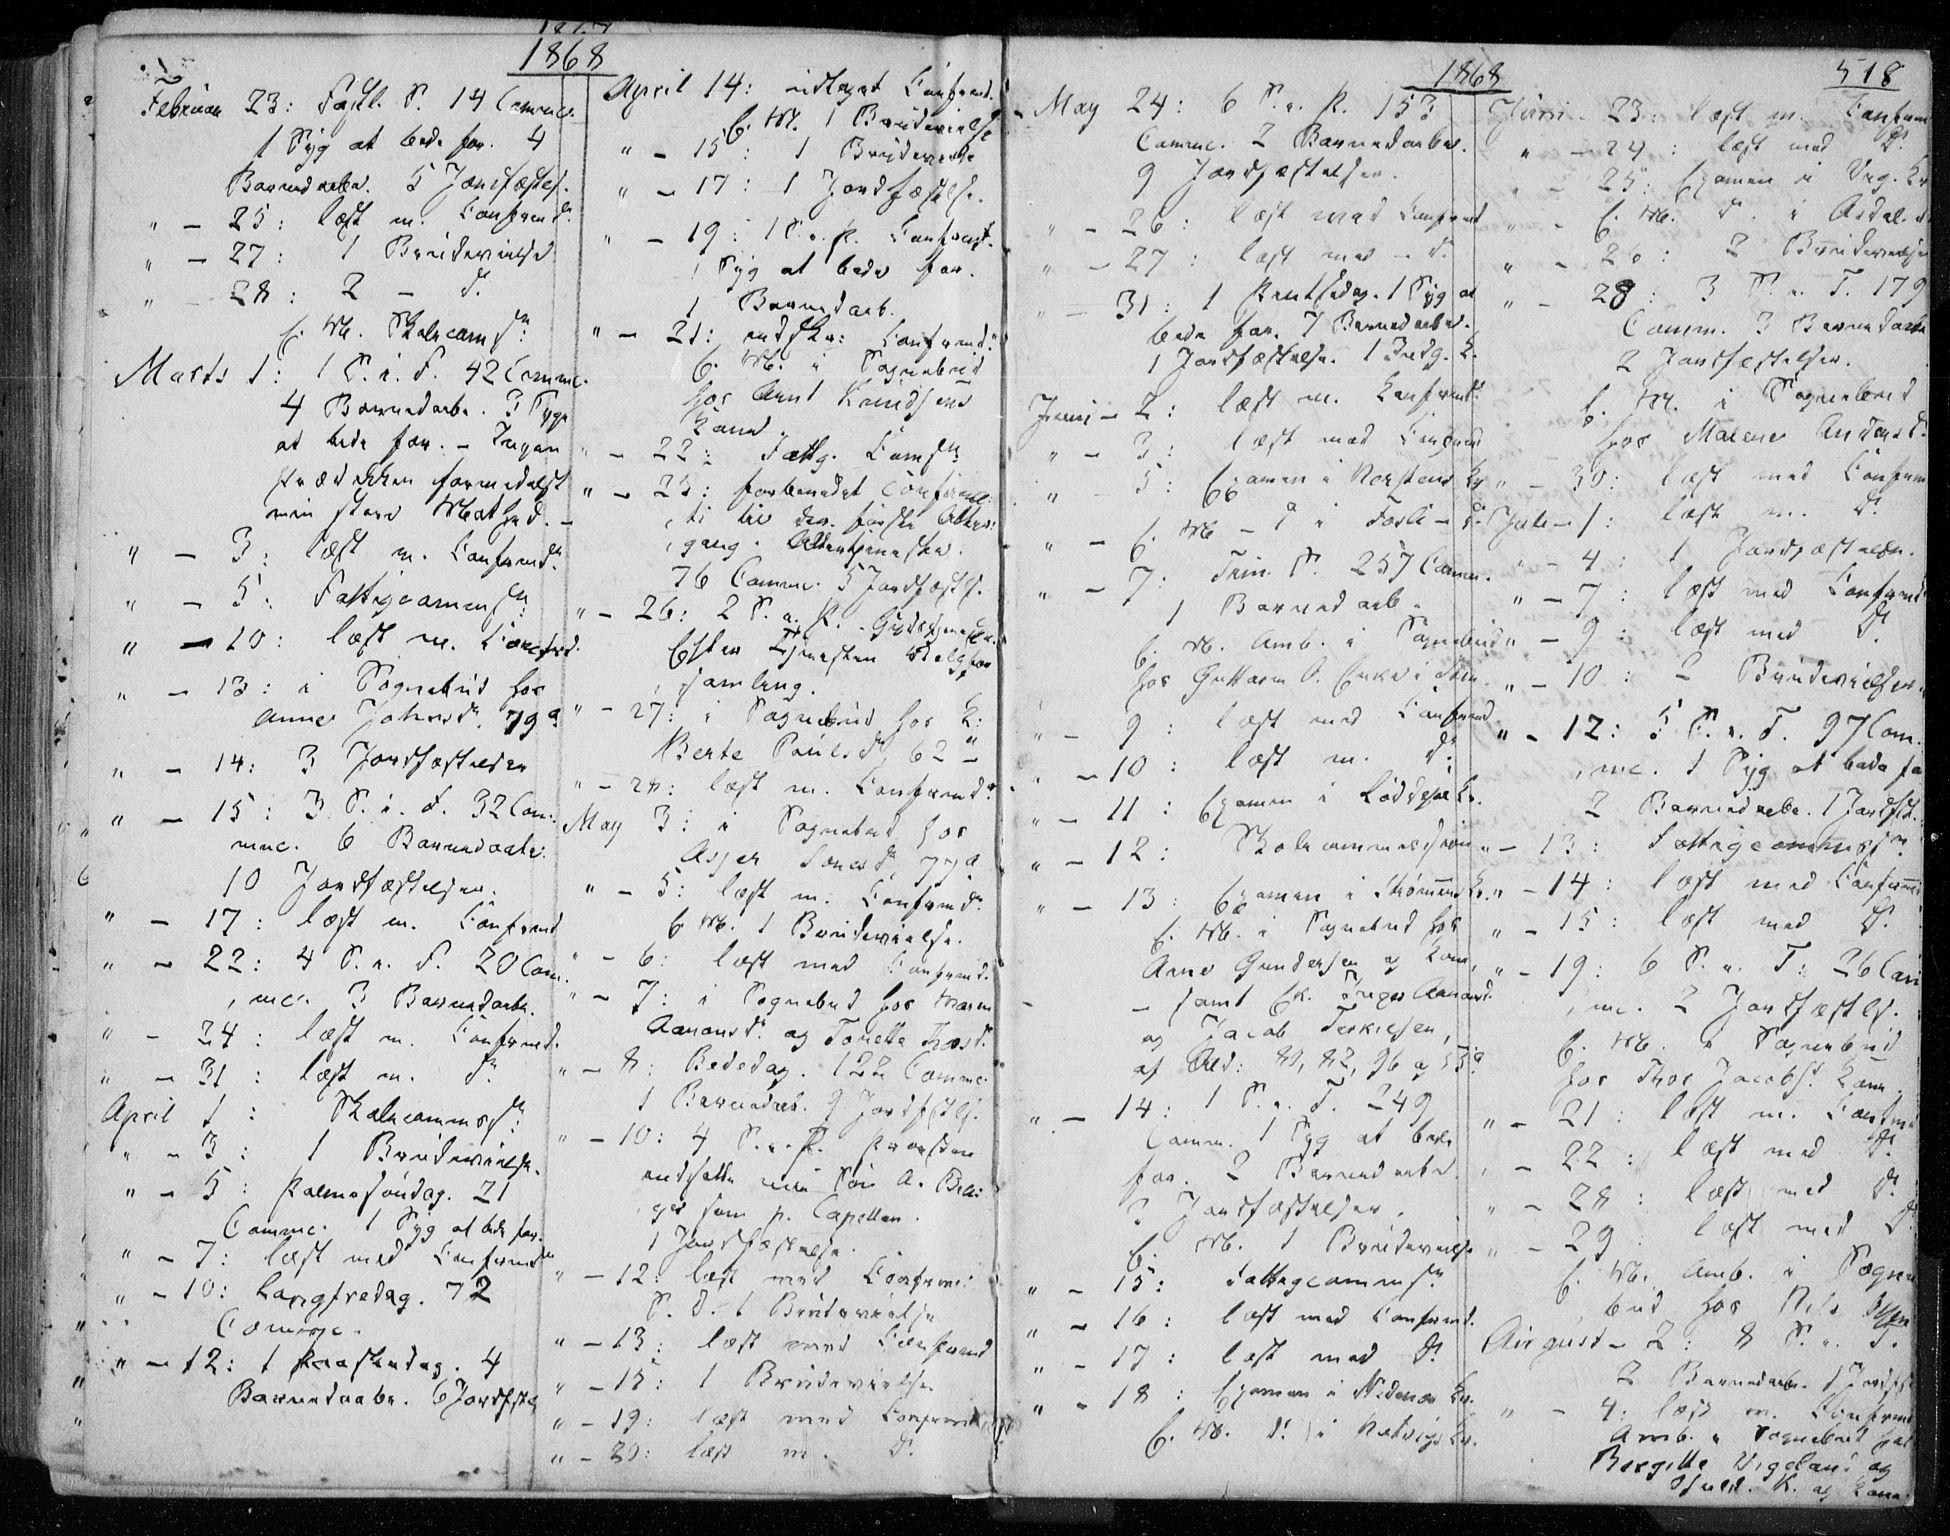 1868
Februar 23: Fastl. S. 14 Commc.
1 Syg at bede for. 4
Barnedaabe. 5 Jordfæstels.
" - 25: læst m. Confirmd.
" - 27: 1 Brudevielse
" - 28: 2 - do.
E. M. Skolecomsn.
Marts 1: 1 S. i F. 42 Commc.
4 Barnedaabe. 3 Syge
at bede for. - Ingen
Præd formedelst
min store Mathed. -
" - 3: læst m. Confirmd.
" - 5: Fattigcommsn.
" - 10: læst m. Confirmd.
" - 13: i Sognebud hos
Anne Johnsdr. 79 a
" - 14: 3 Jordfæstelser
" - 15: 3 S. i F. 32 Com-
mc. 6 Barnedaabe.
10 Jordfæstelser.
" - 17: læst m. Confirmd
" - 22: 4 S. i F. 20 Com-
mc. 3 Barnedaabe.
" - 24: læst m. Confirmd.
" - 31: læst m. do.
April 1: Skolecommssn.
" - 3: 1 Brudevielse.
" - 5: Palmesöndag. 21
Commc. 1 Syg at bede for.
" - 7: læst med Confirmd
" - 10: Langfredag. 72
Commc.
" - 12: 1 Paaskedag. 4
Barnedaabe. 6 Jordfstls
April 14: Confirmd.
E. M. 1 Brudevielse
" - 15: 1 Brudevielse
" - 17: 1 Jordfæstelse.
" - 19: 1 S. e. P. Confirmat.
1 Syg at bede for.
1 Barnedaab.
" - 21: indskr: Confirmd.
E. M. i Sognebud
hos Arnt Knudsens
Kone.
" - 22: Fattg. Comsn.
" - 25: forberedet Confirme-
ti til den første Alter-
gang. Altertjenesten.
76 Commc. 5 Jordfæsts.
" - 26: 2 S. e. P.
Efter Tjenesten Valgfor-
samling.
" - 27: i Sognebud hos K:
Berte Poulsdr. 62 a
" - 28: læst m. Confirmd.
May 3: i Sognebud hos
Asjer 77 a
" - 5: læst m. Confirmd.
E. M. 1 Brudevielse.
" - 6: læst med Confirmd.
" - 7: i Sognebud hos Maren
Aanonsdr. og Tonette Thorsdr.
" - 8: Bededag. 122 Commc.
1 Barnedaab. 9 Jordfstls.
" - 10: 4 S. e. P. Provsten
indsatte min Søn A.
som p. Capellan.
1 Jordfæstelse.
" - 12: læst med Confirm:
S. D. 1 Brudevielse
" - 13: læst med Confirmd
" - 15: 1 Brudevielse.
" - 19: læst med Confirmd
" - 20: læst m. do.
1868
518
May 24: 6 S. e. P. 153
Commc. 2 Barnedaabe.
9 Jordfæstelser.
" - 26: læst med Confirmd
" - 27: læst med - do.
" - 31: 1 Pintsedag. 1 Syg at
bede for. 7 Barnedaabe.
1 Jordfæstelse. 1 Indg. K.
Juni - 2: læst m. Confirmd.
" - 3: læst med Confirmd
" - 5: Examen i Kr
" - E. M. - do i Fosli - do.
" - 7: Trin. S. 257 Commc.
1 Barnedaab.
E. M. Amb. i Sognebud
hos Guttorm O. Enke i
" - 9: læst med Confirmd
" - 10: læst m. do.
" - 11: Examen i Kr.
" - 12: Skolecommission
" - 13: Examen i Strømmens Kr.
E. M. i Sognebud hos
Arne Gundersen og Kone,
- samt Ek. Inger Aanonsd.
og Jacob Terkelsen,
af Ald: 80, 82, 96 og 53 a
" - 14: 1 S. e. T. 249
Comm. 1 Syg at bede
for. 2 Barnedaabe.
Jordfæstelser.
E. M. 1 Brudevielse
" - 15: Fattigcommsn.
" - 16: læst med Confirmd.
" - 17: læst med do.
" - 18: Examen i Nedenes Kr.
E. M. do. i Natvigs Kr.
Juni - 23: læst m. Confirm
" - 24: læst med do.
" - 25: Examen i Kr
" - E. M. do. i Asdal. do
" - 26: 2 Brudevielser
" - 28: 3 S. e. T. 179
Comm. 3 Barnedaabe
2 Jordfæstelser.
E. M. i Sognebud
hos Malene Andersd.
" - 30: læst med Confirm
Juli - 1: læst m. do.
" - 4: 1 Jordfæstelse.
" - 7: læst med Confirmd
" - 9: læst med do.
" - 10: 2 Brudevielser.
" - 12: 5 S. e. T. 97 Com-
mc. 1 Syg at bede fo
2 Barnedaabe. 1 Jordfst.
" - 13: Fattigcommssn.
" - 14: læst med Confirm
" - 15: læst med do.
" - 19: 6 S. e. T: 26 Com
mc. 2 Jordfæstls.
E. M. i Sognebud
hos Thor Jacobs. Kone.
" - 21: læst m. Confirm
" - 22: læst med do.
" - 28: læst med do.
" - 29: læst med do.
E. M. Amb. i Sogne-
bud hos Nils
August - 2: 8 S. e. T.
2 Barnedaabe. 1 Jordfst
" - 4: læst m. Confirmd
Amb. i Sognebud hos
Bergitte Vigeland og
K. og Kone.